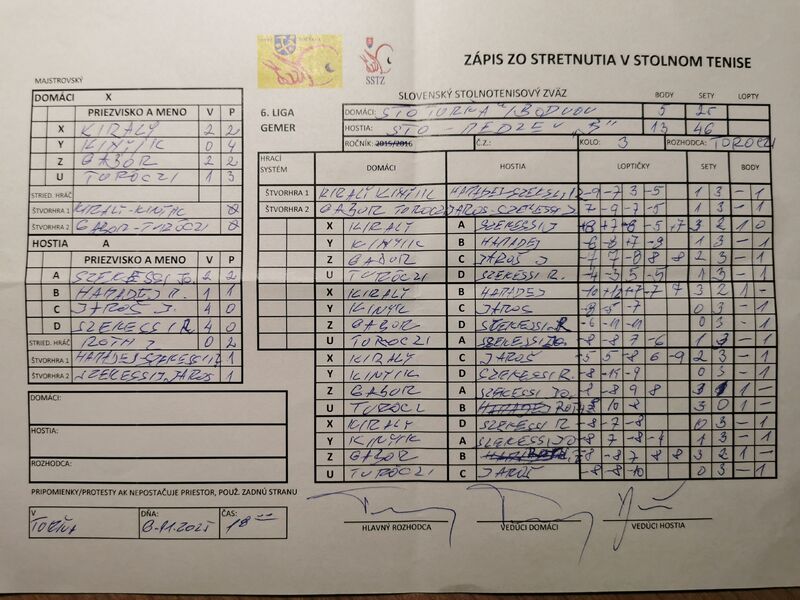 SSTZ
ZÁPIS ZO STRETNUTIA V STOLNOM TENISE
MAJSTROVSKÝ
SLOVENSKÝ STOLNOTENISOVÝ ZVÄZ BODY SETY LOPTY
DOMÁCI X
6. LIGA DOMÁCI: STO TURŇA /BODVOU 5 25
PRIEZVISKO A MENO V P
GEMER HOSTIA: STO - MEDZEV "B" 13 46
X KIRALY 2 2
ROČNÍK: 2015/2016 Č.Z.: KOLO: 3 ROZHODCA: TOROCZI
Y KINYIK 0 4
HRACÍ SYSTÉM DOMÁCI HOSTIA LOPTIČKY SETY BODY
Z GABOR 2 2
U TUROCZI 1 3
STRIED. HRÁČ
ŠTVORHRA 1 KIRALY-KINYIK
ŠTVORHRA 2 GABOR-TUROCZI
HOSTIA A
PRIEZVISKO A MENO V P
A SZEKESSI JO. 2 2
B HAPADEJ 1 1
C JAROŠ J. 4 0
D SZEKESSI R. 4 0
STRIED. HRÁČ ROTH 0 2
ŠTVORHRA 1 HAPADEJ-SZEKESSI 1
ŠTVORHRA 2 SZEKESSI J JAROŠ 1
ŠTVORHRA 1 KIRALY KINYIK HAPADEJ-SZEKESSI -9 -7 3 -5 1 3 - 1
ŠTVORHRA 2 GABOR TUROCZI JAROŠ-SZEKESSI J 7 -9 -7 -5 1 3 - 1
X KIRALY A SZEKESSI J 3 2 1 0
Y KINYIK B HAPADEJ -6 -8 +7 -9 1 3 - 1
Z GABOR C JAROŠ J 2 3 - 1
U TUROCZI D SZEKESSI R. -4 -3 5 -5 1 3 - 1
X KIRALY B HAPADEJ 3 2 1 -
Y KINYIK C JAROŠ -8 -5 -7 0 3 - 1
Z GABOR D SZEKESSI R -6 -11 -11 0 3 - 1
U TUROCZI A SZEKESSI JO. -8 -8 7 -6 1 3 - 1
X KIRALY C JAROŠ -5 5 -8 6 -9 2 3 - 1
Y KINYIK D SZEKESSI R. 0 3 - 1
Z GABOR A SZEKESSI JO. -8 8 9 8 3 1 1 -
U TUROCZI B 8 10 8 3 0 1 -
X KIRALY D SZEKESSI R -8 -7 -8 0 3 - 1
Y KINYIK A SZEKESSI JO 1 3 - 1
Z GABOR B 3 2 1 -
U TUROCZI C JAROŠ -8 -8 -10 0 3 - 1
DOMÁCI:
HOSTIA:
ROZHODCA:
PRIPOMIENKY/PROTESTY AK NEPOSTAČUJE PRIESTOR, POUŽ. ZADNÚ STRANU
V DŇA: ČAS:
TURŇA 8.11.2025 18 00
HLAVNÝ ROZHODCA VEDÚCI DOMÁCI VEDÚCI HOSTIA